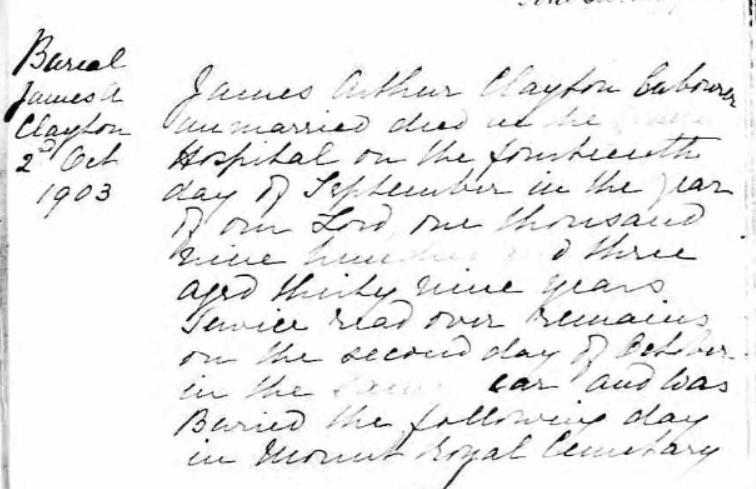 Burial
James A
Clayton
2nd Oct
1903
James Arthur Clayton Labourer
unmarried died in the
Hospital on the fourteenth
day of September in the year
of our Lord one thousand
nine hundred and three
aged thirty nine years
Service read over remains
on the second day of October
in the same year and was
Buried the following day
in Mount Royal Cemetary